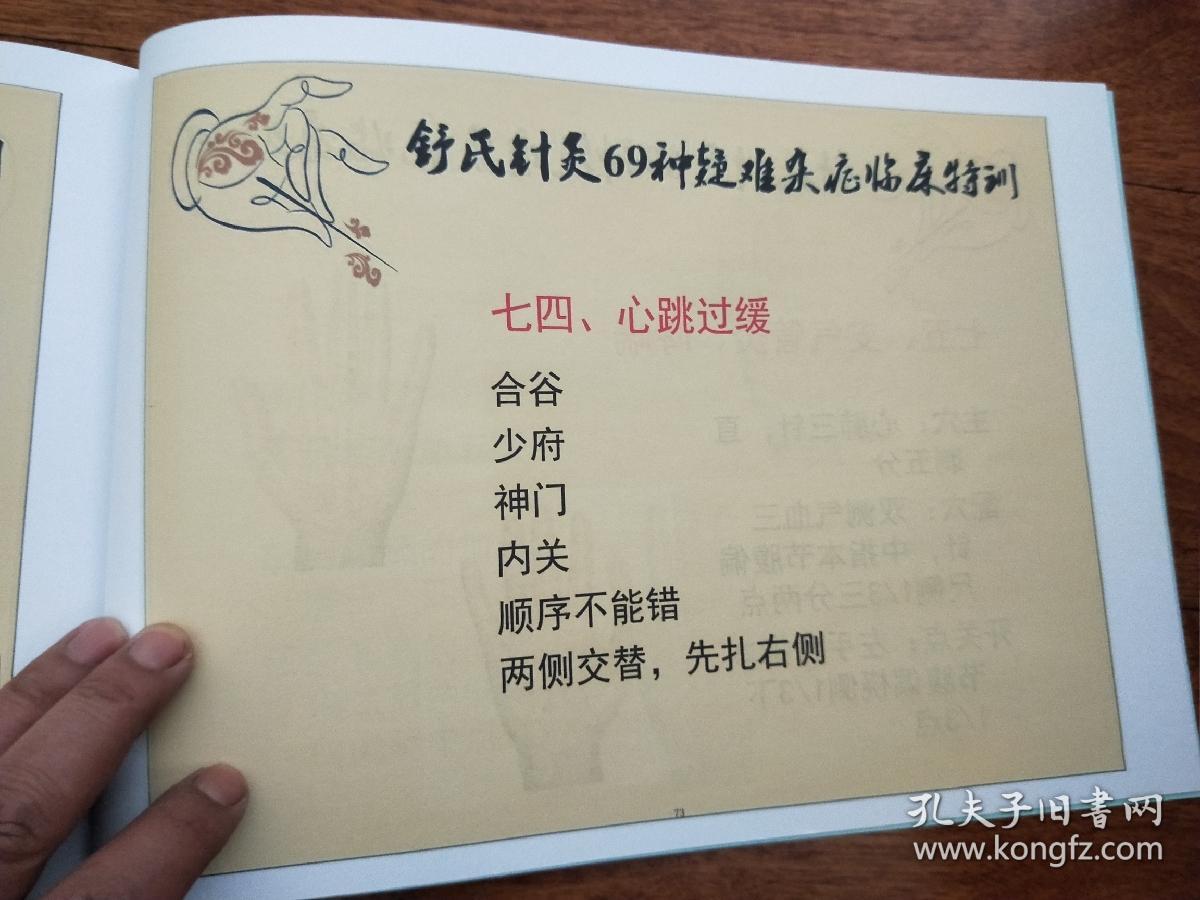 舒氏针灸69种疑难杂症临床特训
七四、心跳过缓
合谷
少府
神门
内关
顺序不能错
两侧交替，先扎右侧
73
孔夫子旧书网
www.kongfz.com